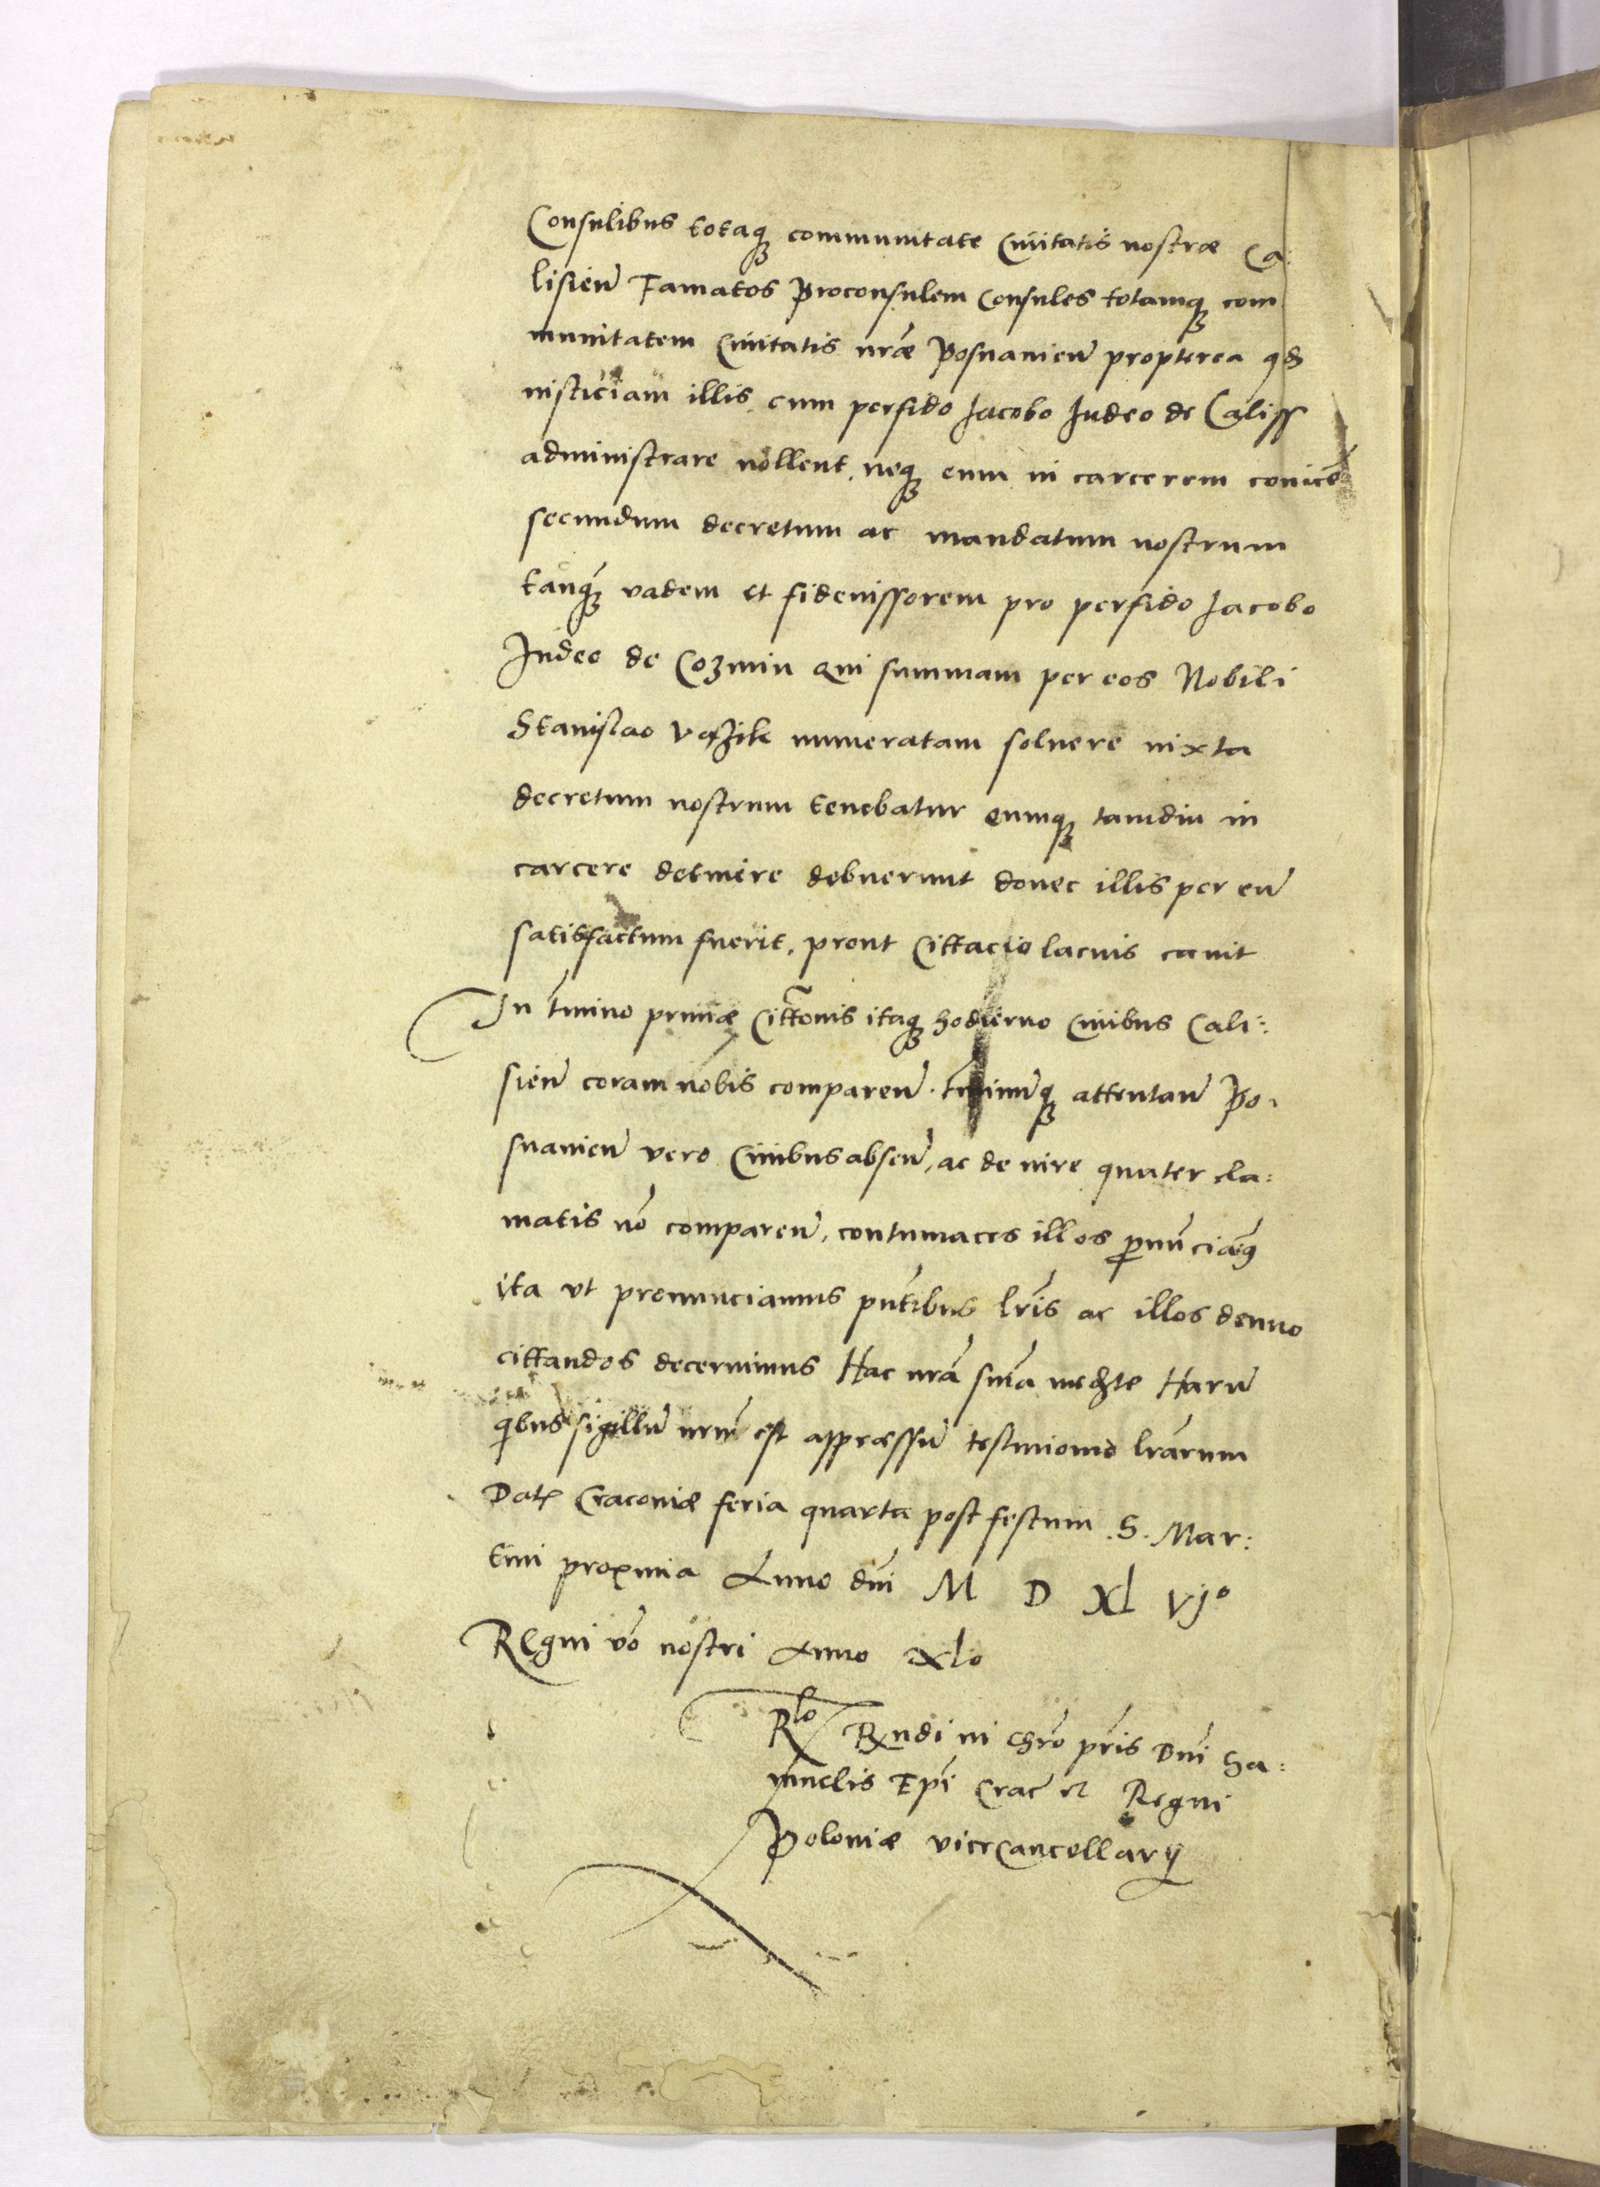 Consulibus totaqꝫ communitate Ciuitatis nostræ Ca:
lisien̄ Famatos Proconsulem Consules totamqꝫ com
munitatem Ciuitatis nr̃æ Posnanien̄ propterea qd̃
iusticiam illis cum perfido Jacobo Judeo de Caliss
administrare nollent, neqꝫ eum in carcerem conicẽ
secundum decretum ac mandatum nostrum
tanqꝫ̃ vadem et fideiussorem pro perfido Jacobo
Judeo de Cozmin qui summam per eos Nobili
Stanislao numeratam soluere iuxta
decretum nostrum tenebatur eumqꝫ tamdiu in
carcere detinere debuerunt donec illis per eū
satisfactum fuerit, prout Cittacio lacius canit
In tm̃ino primæ Citt̃onis itaqꝫ hodierno Ciuibus Cali:
sien̄ coram nobis comparen̄. tm̃inumqꝫ attentan̄ Po:
snanien̄ vero Ciuibus absen̄, ac de iure quater cla:
matis nõ comparen̄, contumaces illos ꝓnũciãꝗ
ita vt pronunciamus pñtibus lr̃is ac illos denuo
cittandos decernimus Hac nrã snĩa mediãte Harū
ꝗbus sigillū nrm̃ est appræssū testimonio lr̃arum
Dat̃ Cracouiæ feria quarta post festum .S. Mar:
tini proxima Anno dñi M D Xl Vjº
Regni võ nostri Anno Xlo
Rlo Rxndi in Chrõ pr̃is Dñi Sa:
muelis Epĩ Crac̃ et Regni
Poloniæ viceCancellarÿ